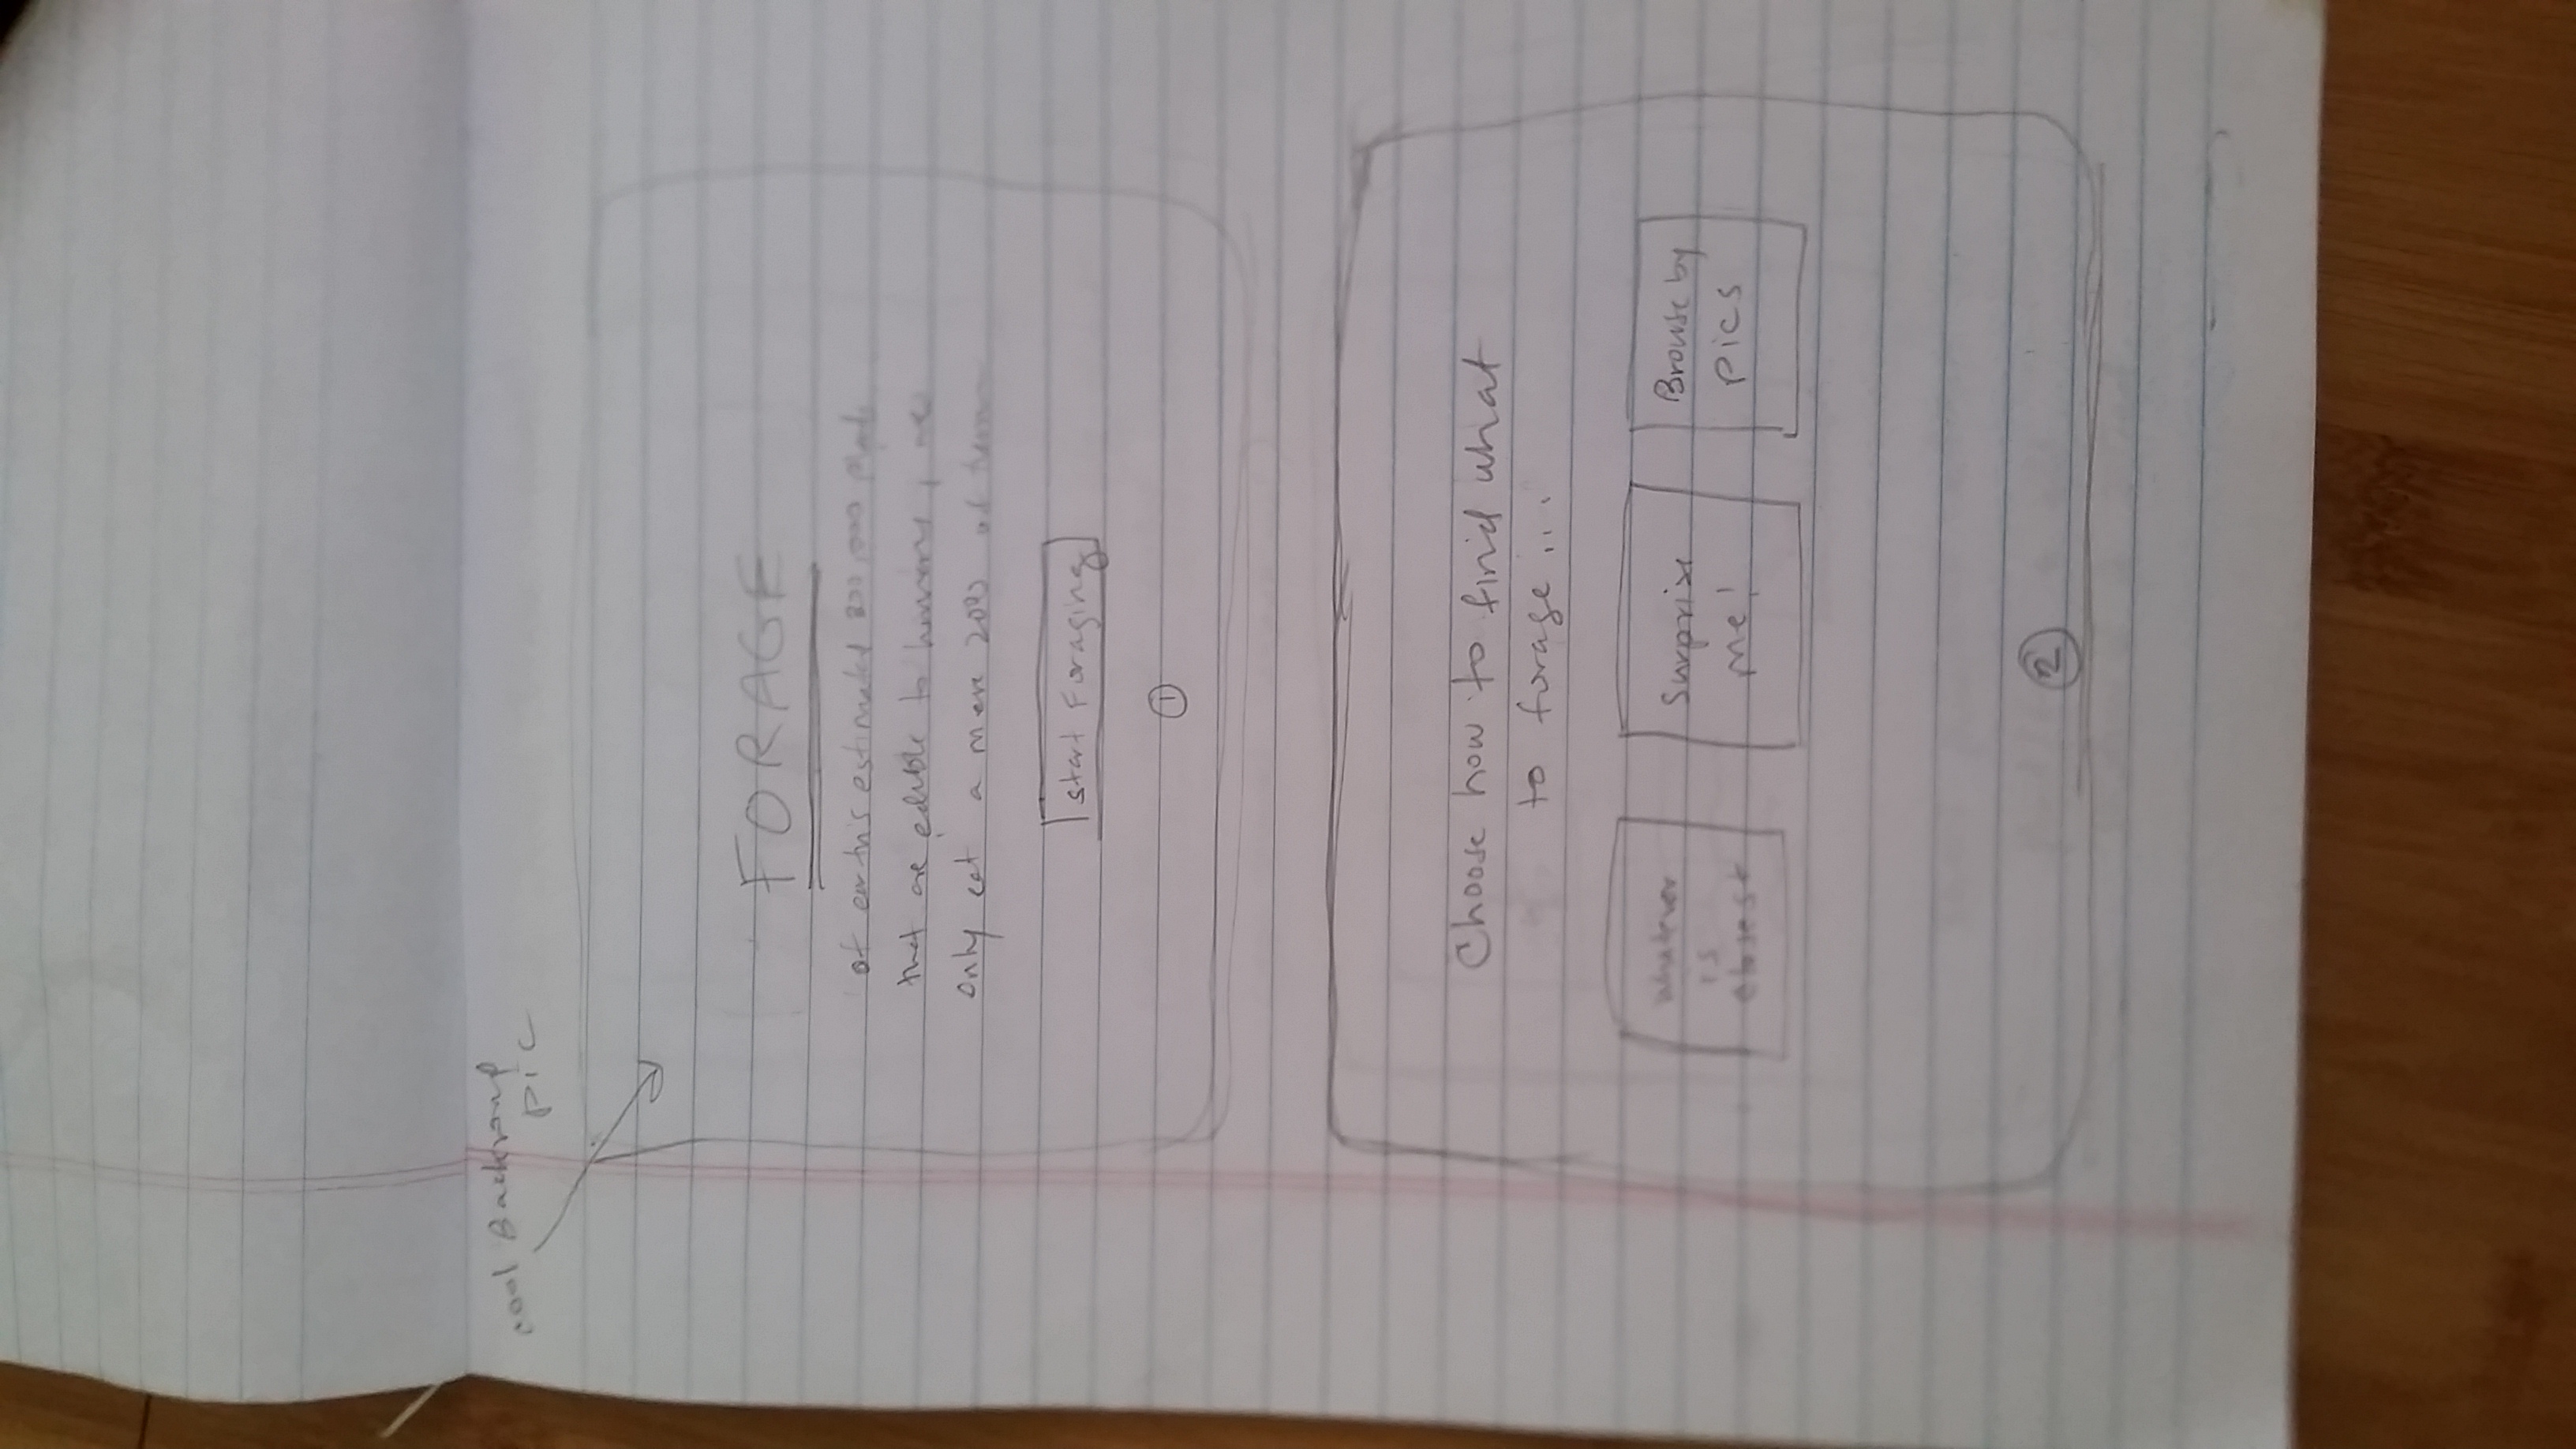 cool Backround
pic
FORAGE
of earth's estimated 300,000 plants
that are edible to humans, we
only eat a mere 200 of them
start Foraging
1
Choose how to find what
to forage...
whatever
is
closest
Surprise
me!
Browse by
pics
2